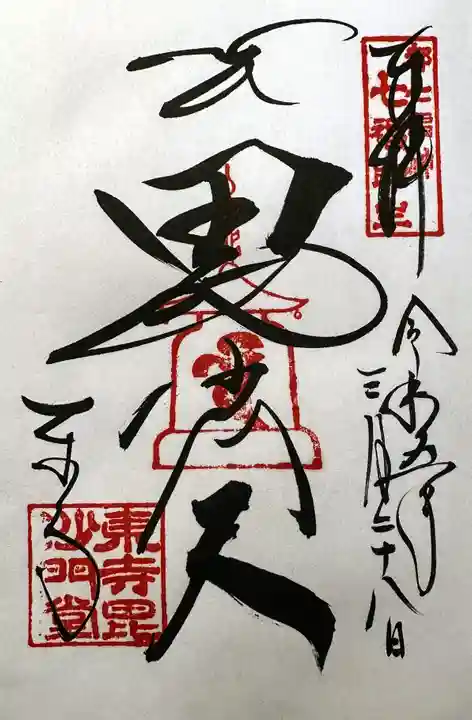 奉拝
令和五年
三月二十八日
毘沙門天
東寺
東寺毘
沙門堂